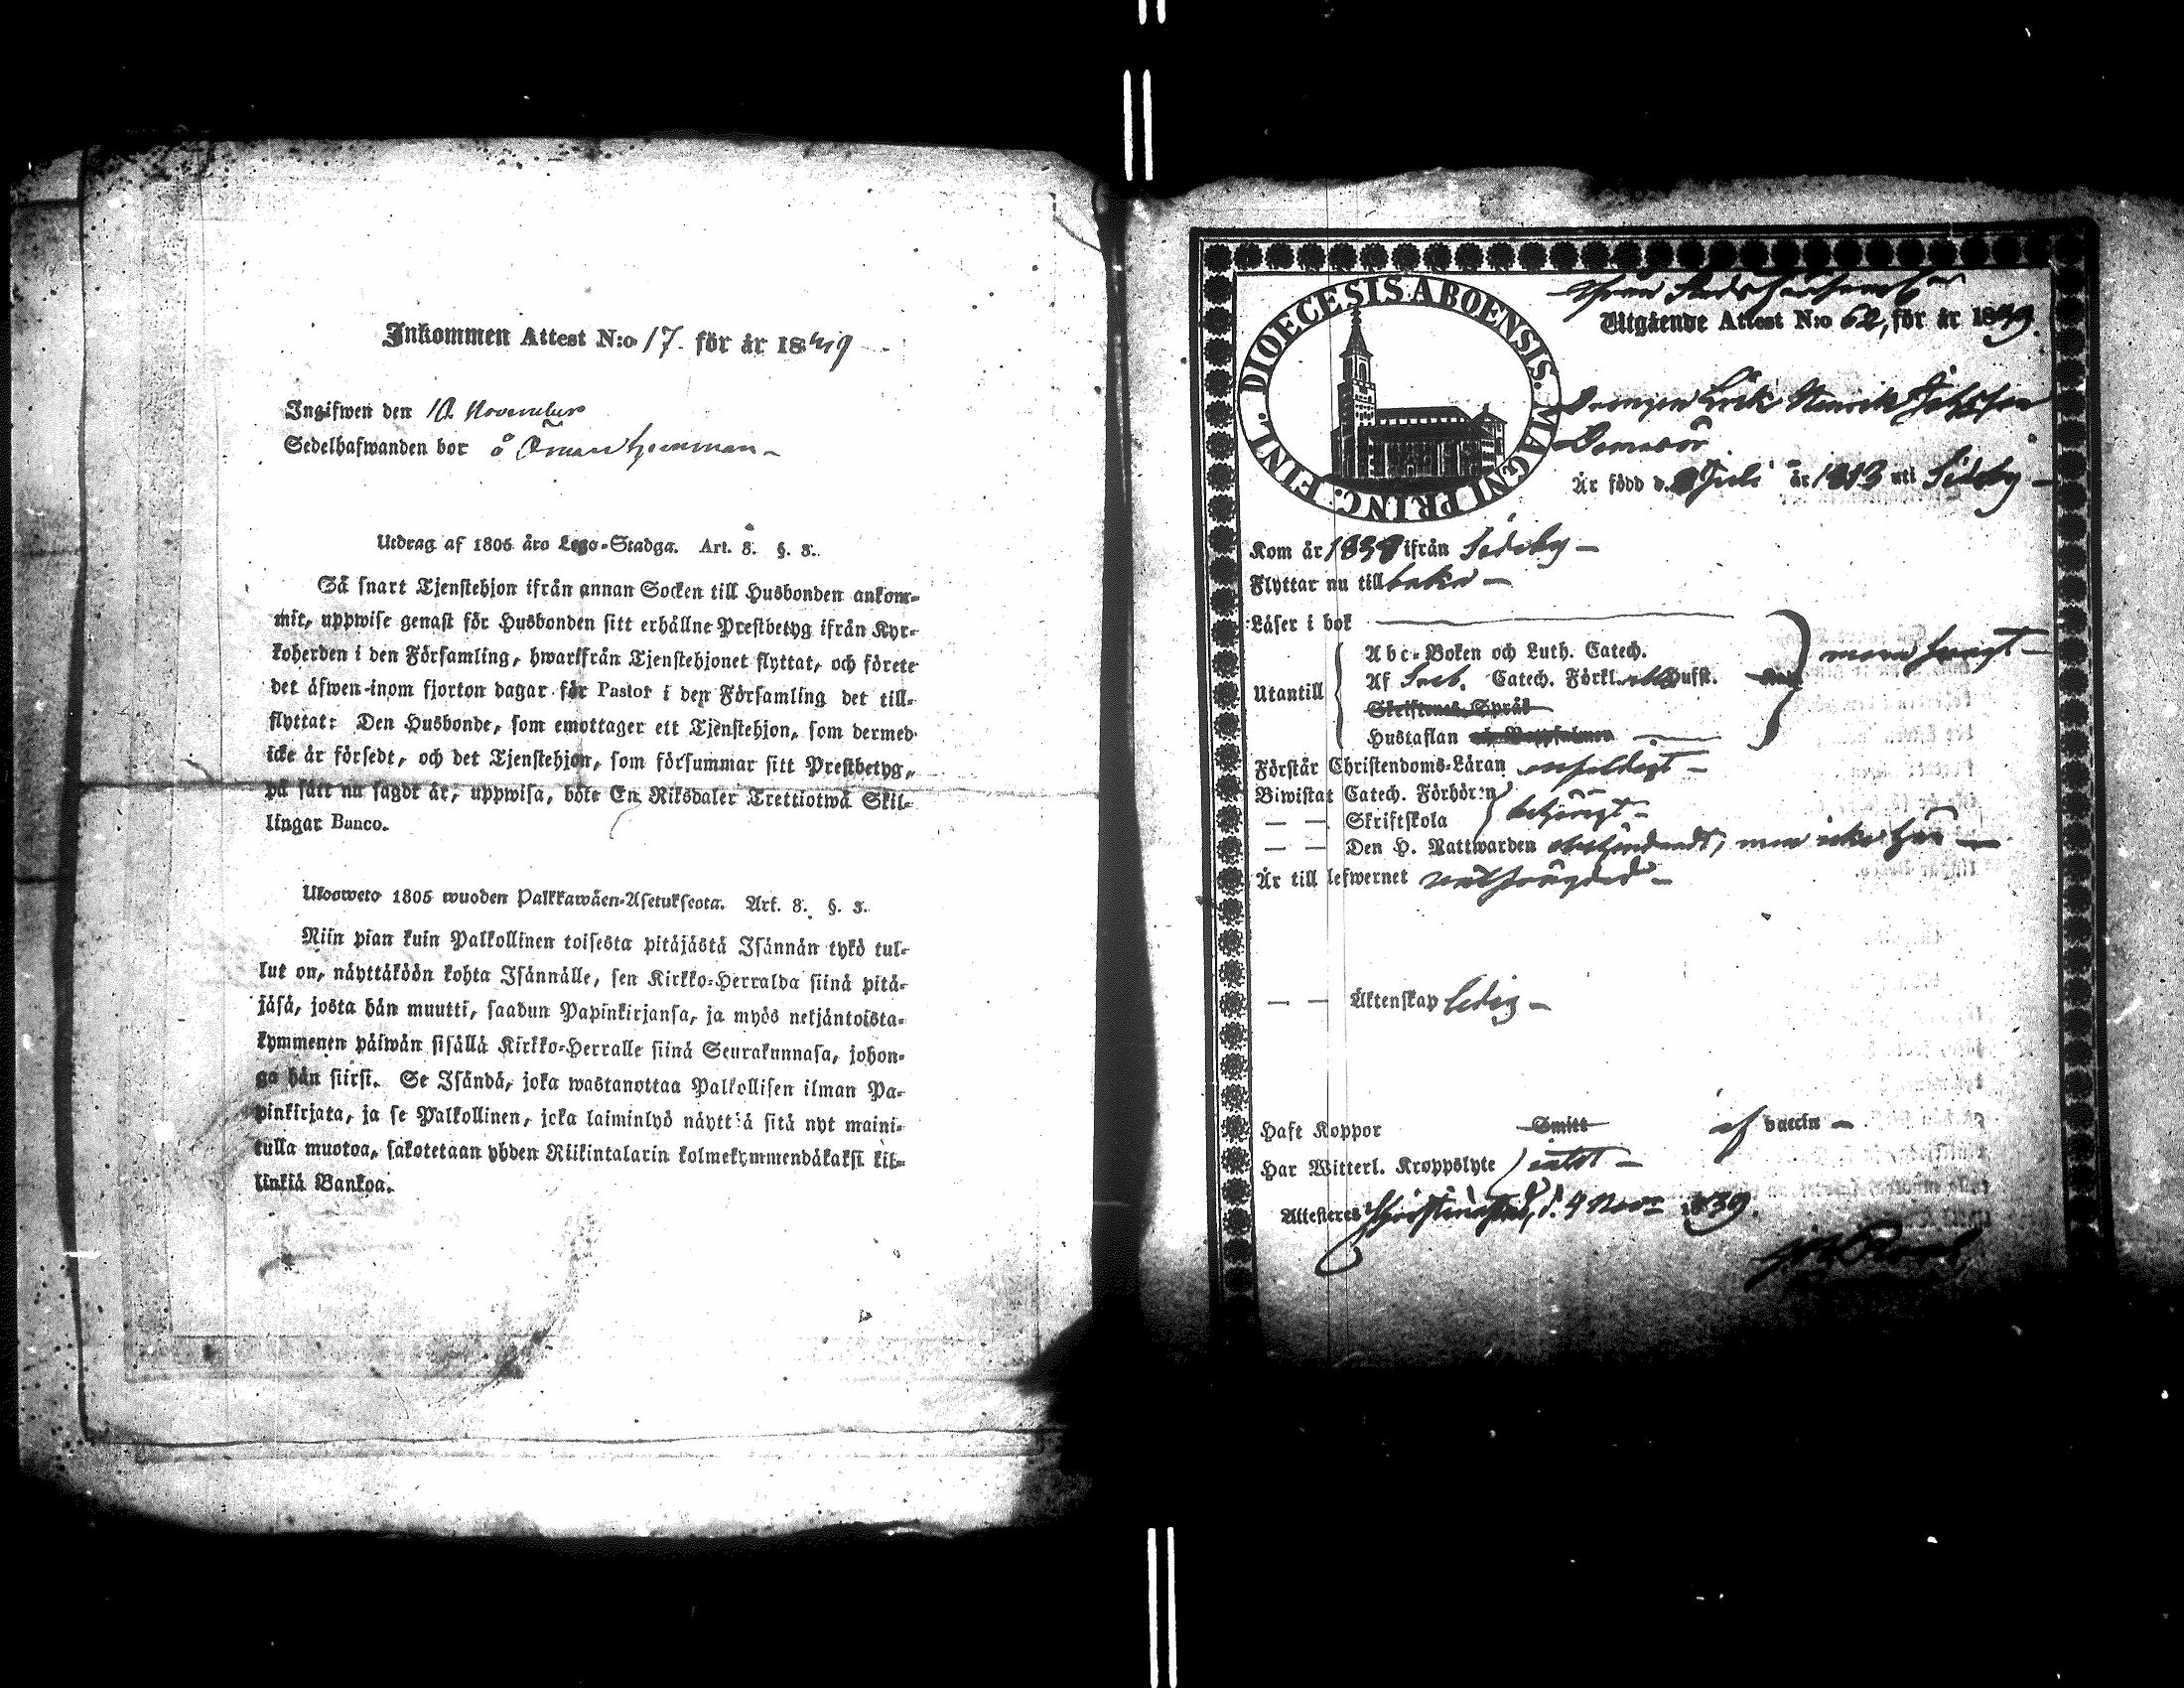 Inkommen Attest N:o 17. för år 1839
Ingifwen den 10. November
Sedelhafwanden bor å hemman
Utdrag af 1805 åro Lego-Stadga. Art. 8. §. 3.
Så snart Tjenstehjon ifrån annan Socken till Husbonden ankom-
mit, uppwise genast för Husbonden sitt erhållne Prestbetyg ifrån Kyr-
koherden i den Församling, hwarifrån Tjenstehjonet flyttat, och förete
det äfwen inom fjorton dagar för Pastor i den Församling det till-
flyttat: Den Husbonde, som emottager ett Tjenstehjon, som dermed
icke är försedt, och det Tjenstehjon, som försummar sitt Prestbetyg,
på sätt nu sagdt är, uppwisa, böte En Riksdaler Trettiotwå Skil-
lingar Banco.
Ulosweto 1805 wuoden Palkkawäen-Asetuksesta. Art. 8. §. 3.
Niin pian kuin Palkollinen toisesta pitäjästä Isännän tykö tul-
lut on, näyttäköön kohta Isännälle, sen Kirkko-Herralda siinä pitä-
jäsä, josta hän muutti, saadun Papinkirjansa, ja myös neljäntoista-
kymmenen päiwän sisällä Kirkko-Herralle siinä Seurakunnasa, johon-
ga hän siirsi. Se Isändä, joka wastanottaa Palkollisen ilman Pa-
pinkirjata, ja se Palkollinen, joka laiminlyö näyttää sitä nyt maini-
tulla muotoa, sakotetaan yhden Riikintalarin kolmekymmendäkaksi kil-
linkiä Bankoa.
DIOECESIS ABOENSIS. MAGNI PRINC. FINL.
Utgående Attest N:o 62, för år 1839.
Drengen Erik Henrik
Är född d. Juli år 1813 uti Sideby
Kom år 1838 ifrån Sideby
Flyttar nu tillbaka
Läser i bok
Utantill
Abc-Boken och Luth. Catech.
Af Catech. Förkl. Hust.
Skriftenes Språk
Hustaflan
svagt
Förstår Christendoms-Läran enfaldigt
Biwistat Catech. Förhören
— — Skriftskola
behörigt
— — Den H. Nattwarden men icke här
Är till lefwernet
— — Äktenskap ledig
Haft Koppor Smitt af vaccin
Har Witterl. Kroppslyte intet
Attesteres Christinestad, d. 9 Nov. 1839.